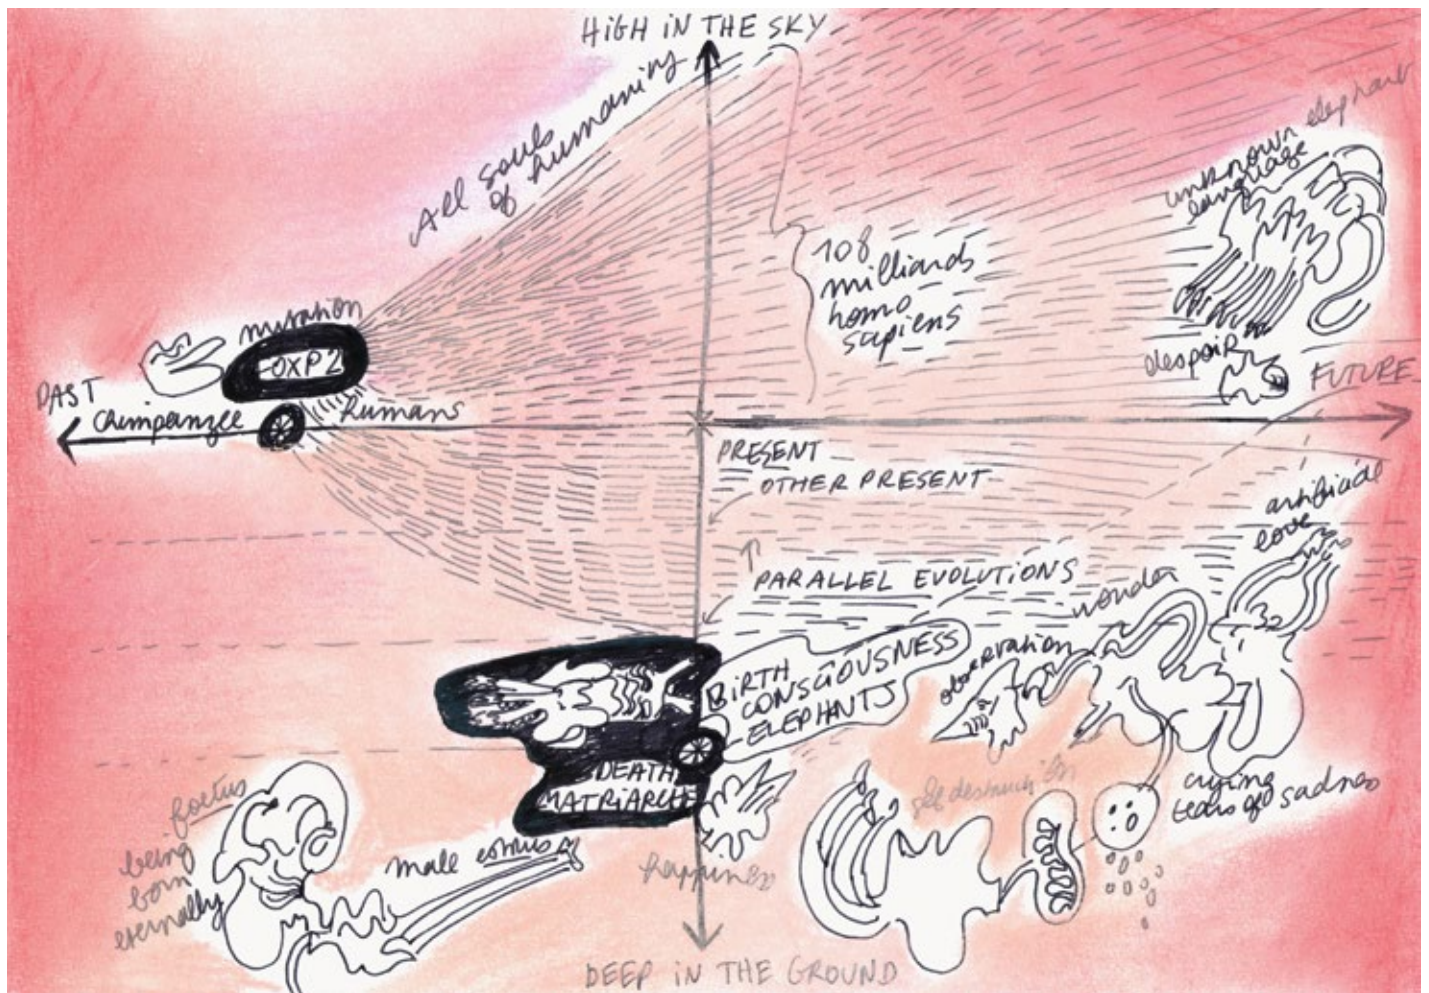 HIGH IN THE SKY
All souls
of humanity
unknown elephant
language
108
milliards
homo
sapiens
mutation
FOXP2
despair
PAST
FUTURE
chimpanzee
humans
PRESENT
OTHER PRESENT
artificial
love
PARALLEL EVOLUTIONS
wonder
observation
BIRTH
CONSCIOUSNESS
-ELEPHANTS
DEATH
MATRIARCH
foetus
being
born
eternally
male
happiness
self destruction
crying
tears of sadness
DEEP IN THE GROUND